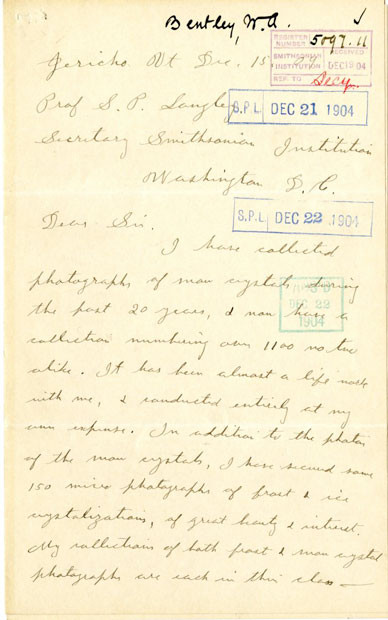 Bentley, W.A.
REGISTER NUMBER 5097.11
SMITHSONIAN INSTITUTION
RECEIVED DEC 1904
REF. TO Secy.
Jericho Vt Dec. 15
Prof S. P. Langley
S.P.L. DEC 21 1904
Secretary Smithsonian Institution
Washington D. C.
S.P.L DEC 22 1904
Dear Sir.
I have collected
photographs of snow crystals during
DEC 22 1904
the past 20 years, & now have a
collection numbering over 1100 no two
alike. It has been almost a life work
with me, & conducted entirely at my
own expense. In addition to the photos
of the snow crystals, I have secured some
150 micro photographs of frost & ice
crystalizations, of great beauty & interest.
My collections of both frost & snow crystal
photographs are each in this class —